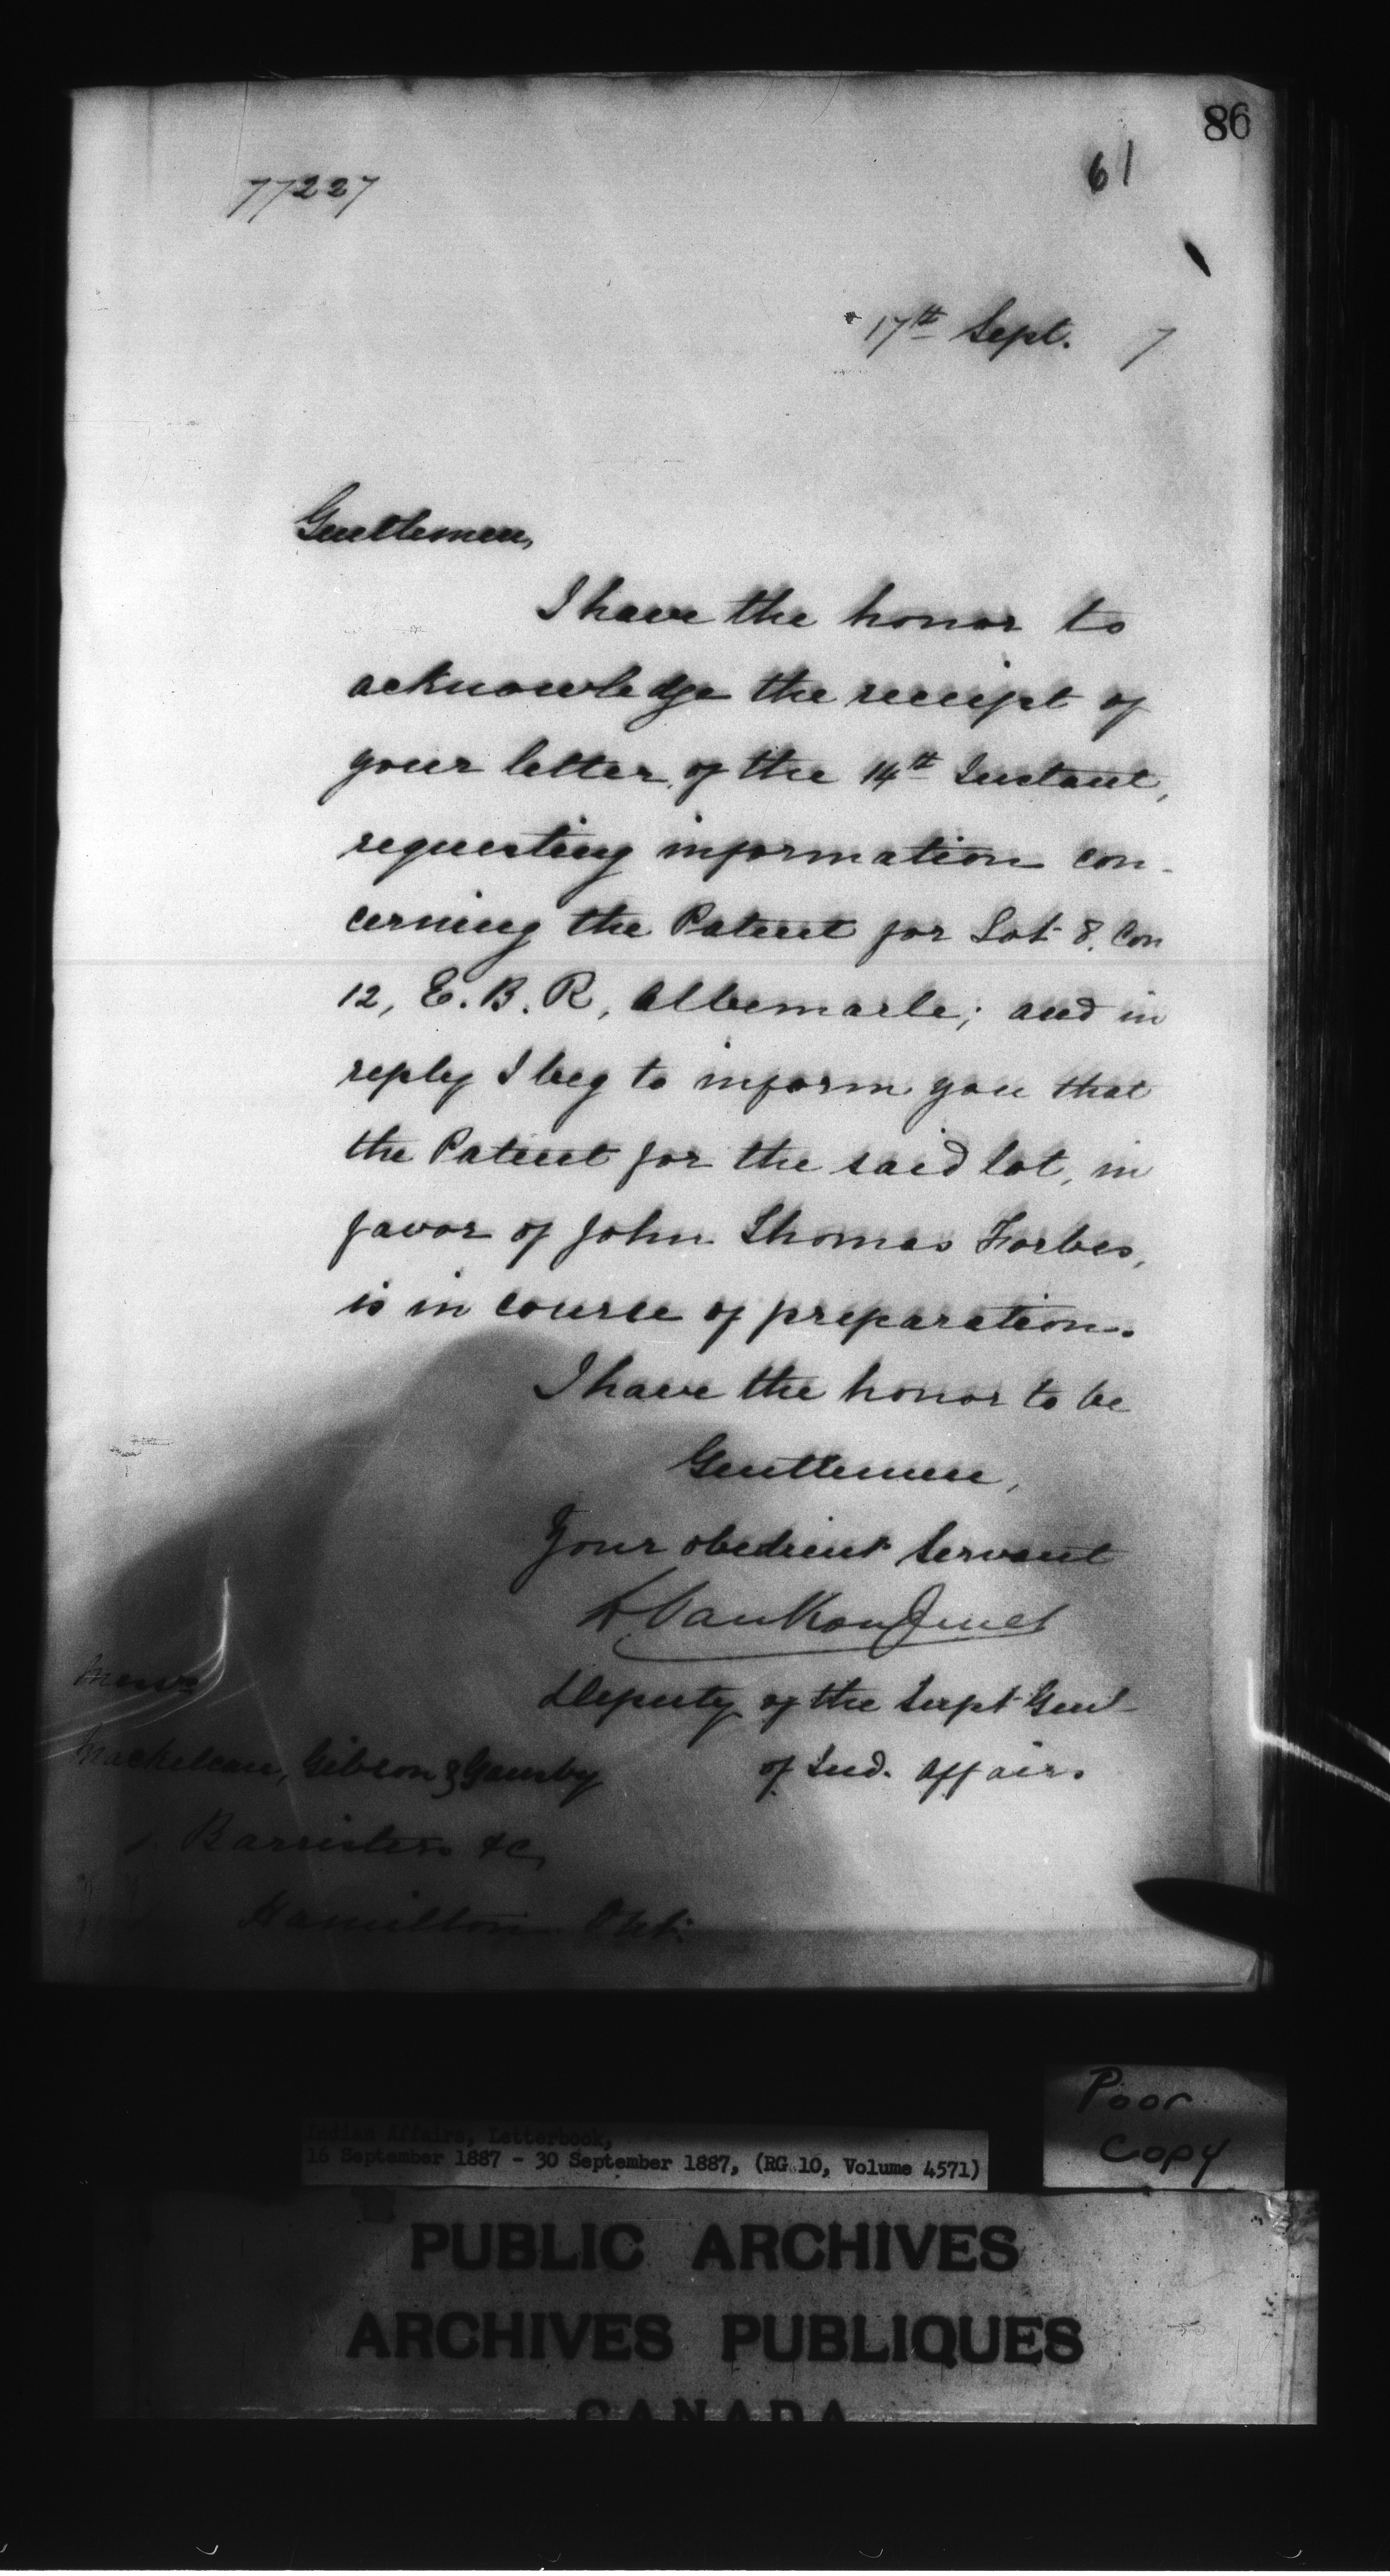 86
61
77227
17th Sept. 7
Gentlemen,
I have the honor to
acknowledge the receipt of
your letter of the 14th Instant,
requesting information con-
cerning the Patent for Lot 8. Con
12, E. B. R, Albemarle; and in
reply I beg to inform you that
the Patent for the said lot, in
favor of John Thomas Forbes,
is in course of preparation.
I have the honor to be
Gentlemen,
Your obedient Servant
L VanKoughnet
Deputy of the Supt Genl
of Ind. Affairs
Messrs
Mackelcan, Gibson & Gausby
Barristers &c,
Hamilton Ont.
Poor
Copy
Indian Affairs, Letterbook,
16 September 1887 - 30 September 1887, (RG 10, Volume 4571)
PUBLIC ARCHIVES
ARCHIVES PUBLIQUES
CANADA